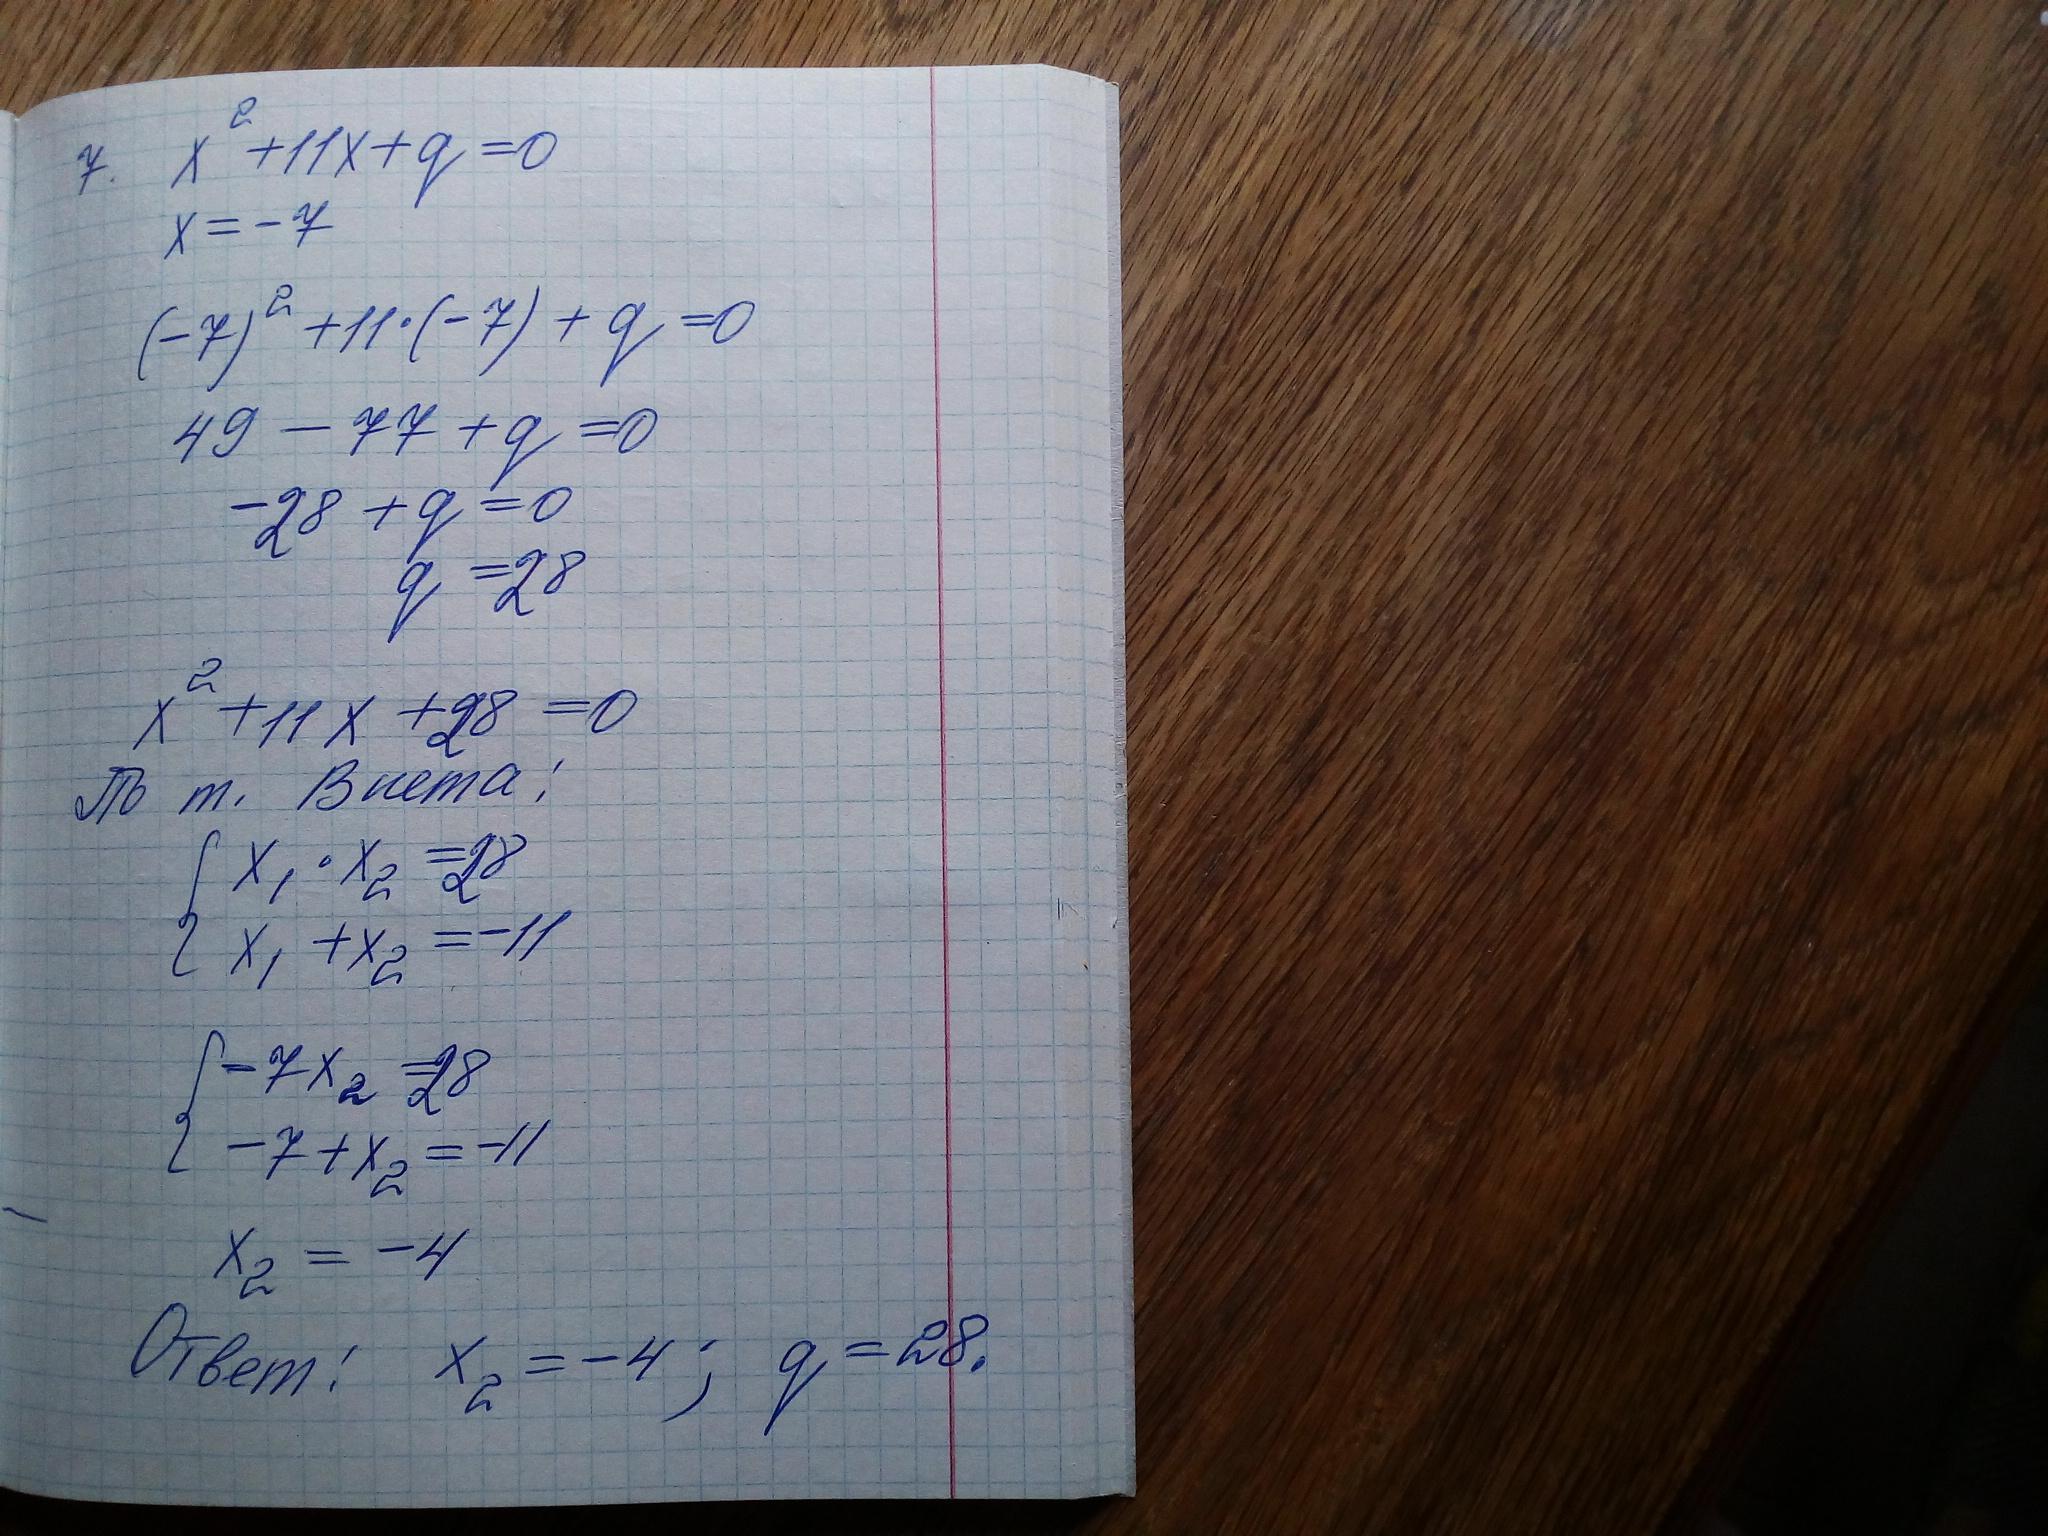 7. x² +11x+q =0
x=-7
(-7)² +11·(-7) + q =0
49 - 77 + q =0
-28 + q =0
q =28
x² +11x +28 =0
По т. Виета:
{ x₁ · x₂ =28
{ x₁ + x₂ =-11
{ -7x₂ =28
{ -7 + x₂ = -11
x₂ = -4
Ответ: x₂ = -4; q =28.